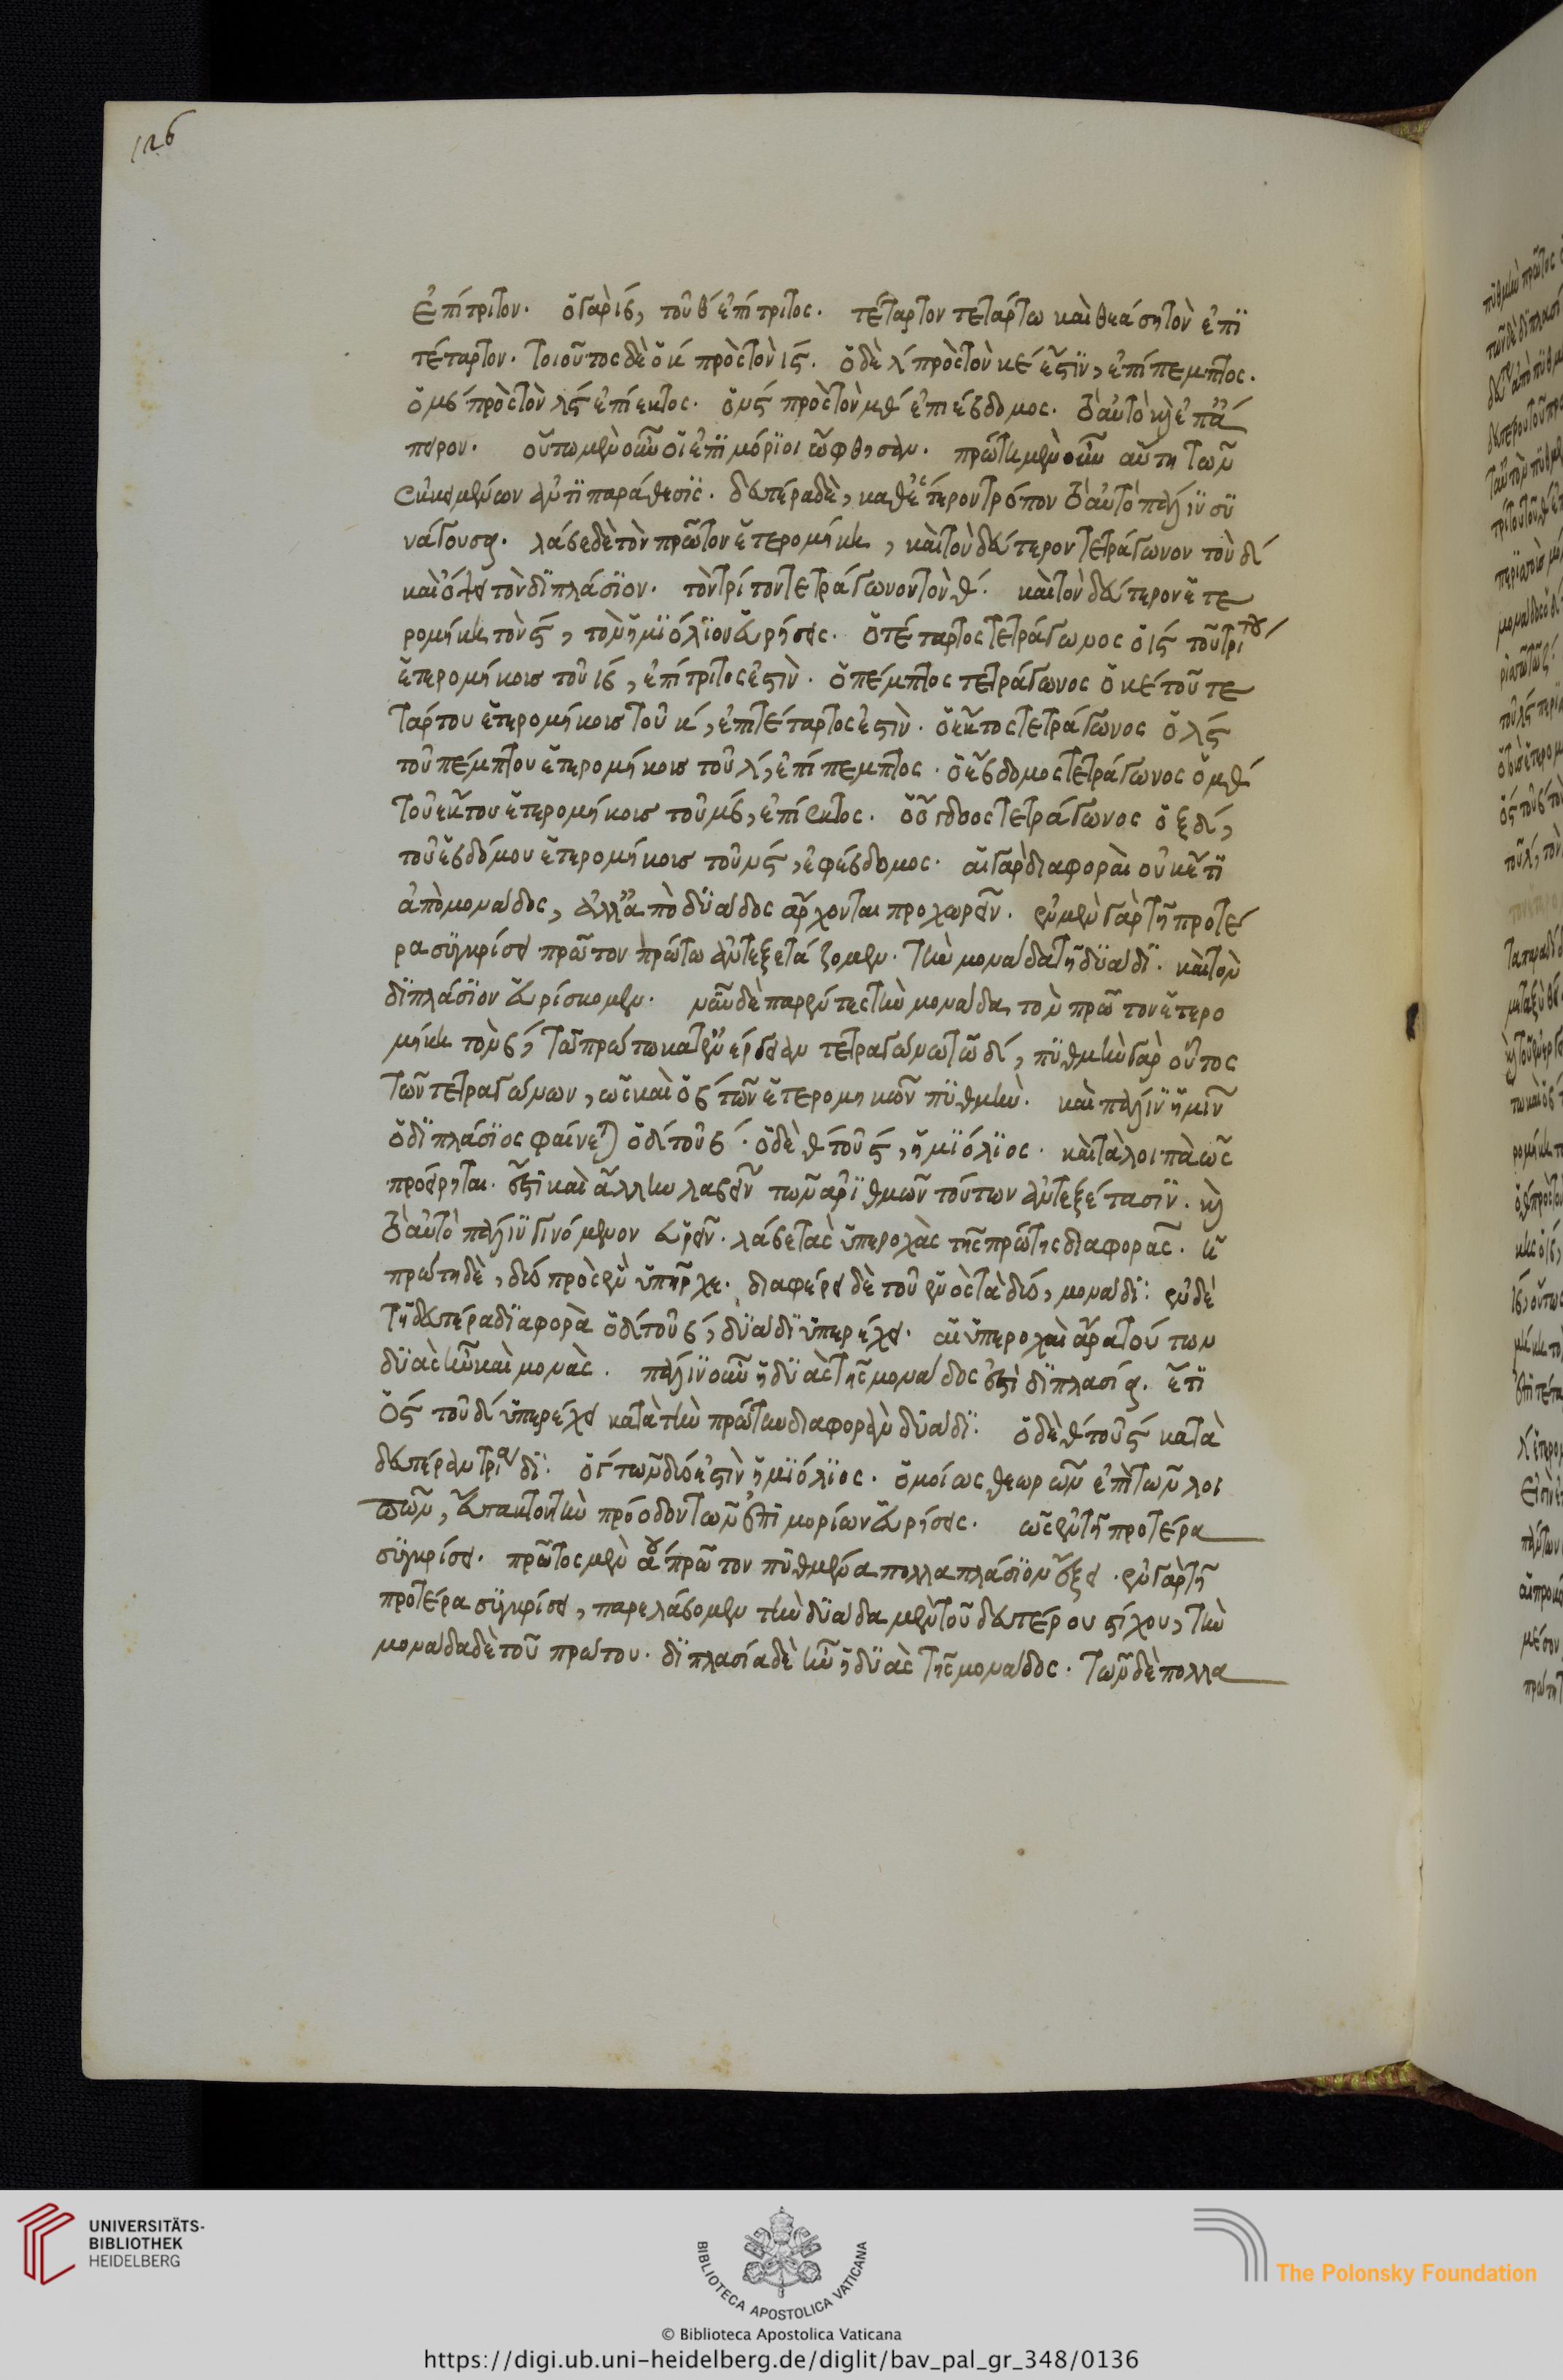 126
ἐπίτριτον. ὁ γὰρ ιβ, τοῦ θ ἐπίτριτος. τέταρτον τετάρτω καὶ θεάση τὸν ἐπι
τέταρτον. τοιοῦτος δὲ ὁ κ πρὸς τὸν ις. ὁ δὲ λ πρὸς τὸν κε ἐστὶν, ἐπίπεμπτος.
ὁ μβ πρὸς τὸν λς ἐπίεκτος. ὁ νς πρὸς τὸν μθ ἐπιέβδομος. τὸ αὐτὸ καὶ ἐπ' ἄ
πειρον. οὕτω μὲν οὖν οἱ ἐπιμόριοι ὤφθησαν. πρώτη μὲν οὖν αὕτη τῶν
ἐκκειμένων ἀντιπαράθεσις. δευτέρα δὲ, καθ' ἕτερον τρόπον τὸ αὐτὸ πάλιν συ
νάγουσα. λάβε δὲ τὸν πρῶτον ἑτερομήκη, καὶ τὸν δεύτερον τετράγωνον τὸν δ
καὶ ὄψει τὸν διπλάσιον. τὸν τρίτον τετράγωνον τὸν θ. καὶ τὸν δεύτερον ἑτε
ρομήκη τὸν ς, τὸν ἡμιόλιον εὑρήσεις. ὁ τέταρτος τετράγωνος ὁ ις τοῦ τρίτου
ἑτερομήκους τοῦ ιβ, ἐπίτριτος ἐστὶν. ὁ πέμπτος τετράγωνος ὁ κε τοῦ τε
τάρτου ἑτερομήκους τοῦ κ, ἐπιτέταρτος ἐστὶν. ὁ ἕκτος τετράγωνος ὁ λς
τοῦ πέμπτου ἑτερομήκους τοῦ λ, ἐπίπεμπτος. ὁ ἕβδομος τετράγωνος ὁ μθ
τοῦ ἕκτου ἑτερομήκους τοῦ μβ, ἐπίεκτος. ὁ ὄγδοος τετράγωνος ὁ ξδ,
τοῦ ἑβδόμου ἑτερομήκους τοῦ νς, ἐφέβδομος. αἱ γὰρ διαφοραὶ οὐκέτι
ἀπὸ μονάδος, ἀλλ' ἀπὸ δυάδος ἄρχονται προχωρεῖν. ἐν μὲν γὰρ τῇ προτέ
ρα συγκρίσει πρῶτον πρώτω ἀντεξετάζομεν. τὴν μονάδα τῇ δυάδι. καὶ τὸν
διπλάσιον εὑρίσκομεν. νῦν δὲ παρέντες τὴν μονάδα, τὸν πρῶτον ἑτερο
μήκη τὸν β, τῶ πρώτω κατ' ἐνέργειαν τετραγώνω τῶ δ, πυθμὴν γὰρ οὗτος
τῶν τετραγώνων, ὡς καὶ ὁ β τῶν ἑτερομηκῶν πυθμὴν. καὶ πάλιν ἡμῖν
ὁ διπλάσιος φαίνεται ὁ δ τοῦ β. ὁ δὲ θ τοῦ ς, ἡμιόλιος. καὶ τὰ λοιπὰ ὡς
προείρηται. ἔστι καὶ ἄλλην λαβεῖν τῶν ἀριθμῶν τούτων ἀντεξέτασιν. καὶ
τὸ αὐτὸ πάλιν γινόμενον εὑρεῖν. λάβε τὰς ὑπεροχὰς τῆς πρώτης διαφορᾶς. ἡ
πρώτη δὲ, δύο πρὸς ἓν ὑπῆρχε. διαφέρει δὲ τοῦ ἑνὸς τὰ δύο, μονάδι. ἐν δὲ
τῇ δευτέρα διαφορὰ ὁ δ τοῦ β, δυάδι ὑπερέχει. αἱ ὑπεροχαὶ ἄρα τούτων
δυὰς ἦν καὶ μονὰς. πάλιν οὖν ἡ δυὰς τῆς μονάδος ἐστὶ διπλασία. ἔτι
ὁ ς τοῦ δ ὑπερέχει κατὰ τὴν πρώτην διαφορὰν δυάδι. ὁ δὲ θ τοῦ ς κατὰ
δευτέραν τριάδι. ὁ γ τῶν δύο ἐστὶν ἡμιόλιος. ὁμοίως θεωρῶν ἐπὶ τῶν λοι
πῶν, εὔτακτον τὴν πρόοδον τῶν ἐπιμορίων εὑρήσεις. ὡς ἐν τῇ προτέρα
συγκρίσει. πρῶτος μὲν ὁ πρῶτον πυθμένα πολλαπλάσιον ἕξει. ἐν γὰρ τῇ
προτέρα συγκρίσει, παρελάβομεν τὴν δυάδα μὲν τοῦ δευτέρου στίχου, τὴν
μονάδα δὲ τοῦ πρώτου. διπλασία δὲ ἦν ἡ δυὰς τῆς μονάδος. τῶν δὲ πολλα
UNIVERSITÄTS-
BIBLIOTHEK
HEIDELBERG
BIBLIOTECA APOSTOLICA VATICANA
The Polonsky Foundation
© Biblioteca Apostolica Vaticana
https://digi.ub.uni-heidelberg.de/diglit/bav_pal_gr_348/0136